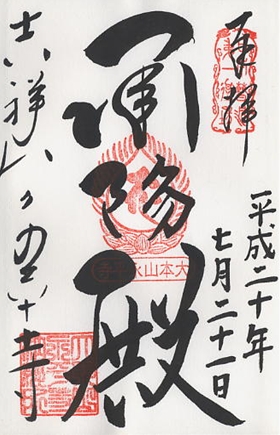 奉拝
平成二十年
七月二十一日
承陽殿
大本山永平寺
吉祥山永平寺